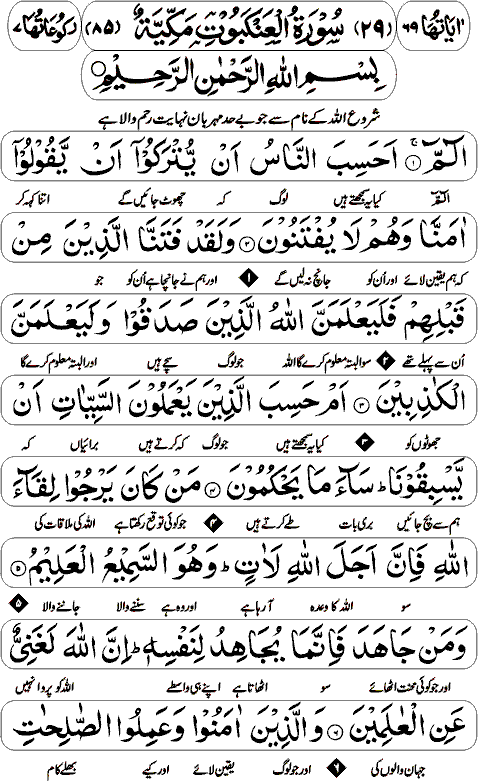 اٰیَاتُهَا ٦٩ (٢٩) سُوْرَةُ الْعَنْكَبُوْتِ مَكِّیَّةٌ (٨٥) رُكُوْعَاتُهَا ٧
بِسْمِ اللّٰهِ الرَّحْمٰنِ الرَّحِیْمِ
شروع اللہ کے نام سے جو بے حد مہربان نہایت رحم والا ہے
الٓمّٓ ۚ﴿۱﴾ اَحَسِبَ النَّاسُ اَنْ یُّتْرَكُوْۤا اَنْ یَّقُوْلُوْۤا
الٓمّٓ کیا یہ سمجھتے ہیں لوگ کہ چھوٹ جائیں گے اتنا کہہ کر
اٰمَنَّا وَهُمْ لَا یُفْتَنُوْنَ ﴿۲﴾ وَلَقَدْ فَتَنَّا الَّذِیْنَ مِنْ
کہ ہم یقین لائے اور اُن کو جانچ نہ لیں گے ۱ اور ہم نے جانچا ہے اُن کو جو
قَبْلِهِمْ فَلَیَعْلَمَنَّ اللّٰهُ الَّذِیْنَ صَدَقُوْا وَلَیَعْلَمَنَّ
اُن سے پہلے تھے ۲ سو البتہ معلوم کرے گا اللہ جو لوگ سچے ہیں اور البتہ معلوم کرے گا
الْكٰذِبِیْنَ ﴿۳﴾ اَمْ حَسِبَ الَّذِیْنَ یَعْمَلُوْنَ السَّیِّاٰتِ اَنْ
جھوٹوں کو ۳ کیا یہ سمجھتے ہیں جو لوگ کہ کرتے ہیں برائیاں کہ
یَّسْبِقُوْنَا ؕ سَآءَ مَا یَحْكُمُوْنَ ﴿۴﴾ مَنْ كَانَ یَرْجُوْا لِقَآءَ
ہم سے بچ جائیں بری بات طے کرتے ہیں ۴ جو کوئی توقع رکھتا ہے اللہ کی ملاقات کی
اللّٰهِ فَاِنَّ اَجَلَ اللّٰهِ لَاٰتٍ ؕ وَهُوَ السَّمِیْعُ الْعَلِیْمُ ﴿۵﴾
سو اللہ کا وعدہ آ رہا ہے اور وہ ہے سننے والا جاننے والا ۵
وَمَنْ جَاهَدَ فَاِنَّمَا یُجَاهِدُ لِنَفْسِهٖ ؕ اِنَّ اللّٰهَ لَغَنِیٌّ
اور جو کوئی محنت اٹھائے سو اٹھاتا ہے اپنے ہی واسطے اللہ کو پروا نہیں
عَنِ الْعٰلَمِیْنَ ﴿۶﴾ وَالَّذِیْنَ اٰمَنُوْا وَعَمِلُوا الصّٰلِحٰتِ
جہان والوں کی ۶ اور جو لوگ یقین لائے اور کیے بھلے کام